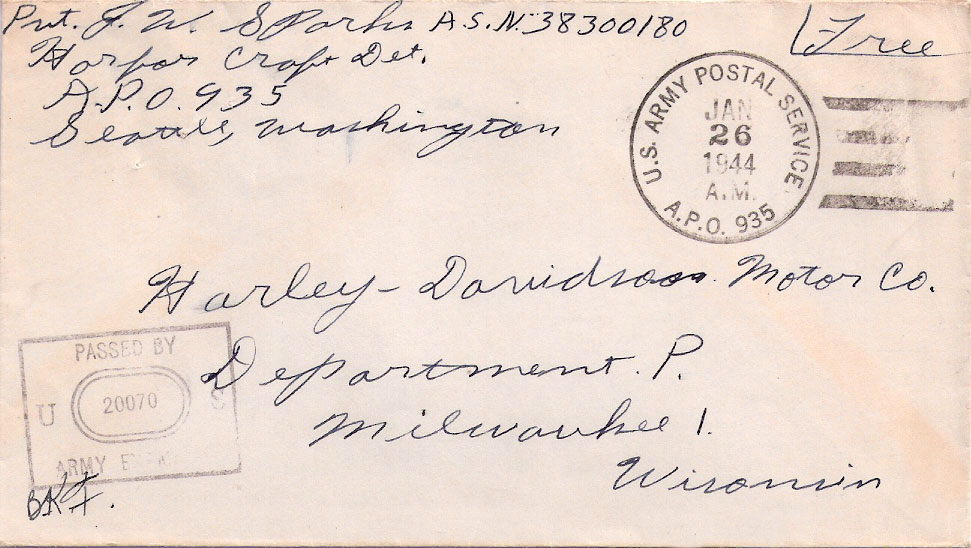 Pvt. J. W. Sparks A.S.N. 38300180
Harbor Craft Det.
A.P.O. 935
Seattle, Washington
Free
U.S. ARMY POSTAL SERVICE
JAN
26
1944
A.M.
A.P.O. 935
Harley-Davidson Motor Co.
Department. P.
Milwaukee 1.
Wisconsin
PASSED BY
U 20070 S
ARMY